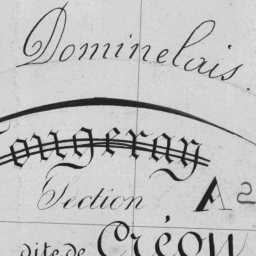 Dominelais.
ougeray
Section A2
dite de Créou